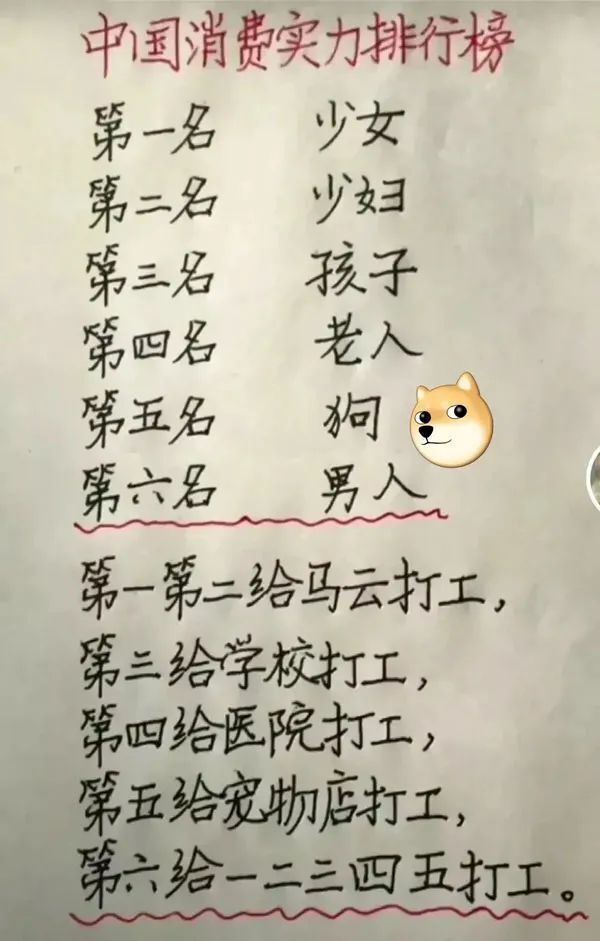 中国消费实力排行榜
第一名 少女
第二名 少妇
第三名 孩子
第四名 老人
第五名 狗
第六名 男人
第一第二给马云打工，
第三给学校打工，
第四给医院打工，
第五给宠物店打工，
第六给一二三四五打工。